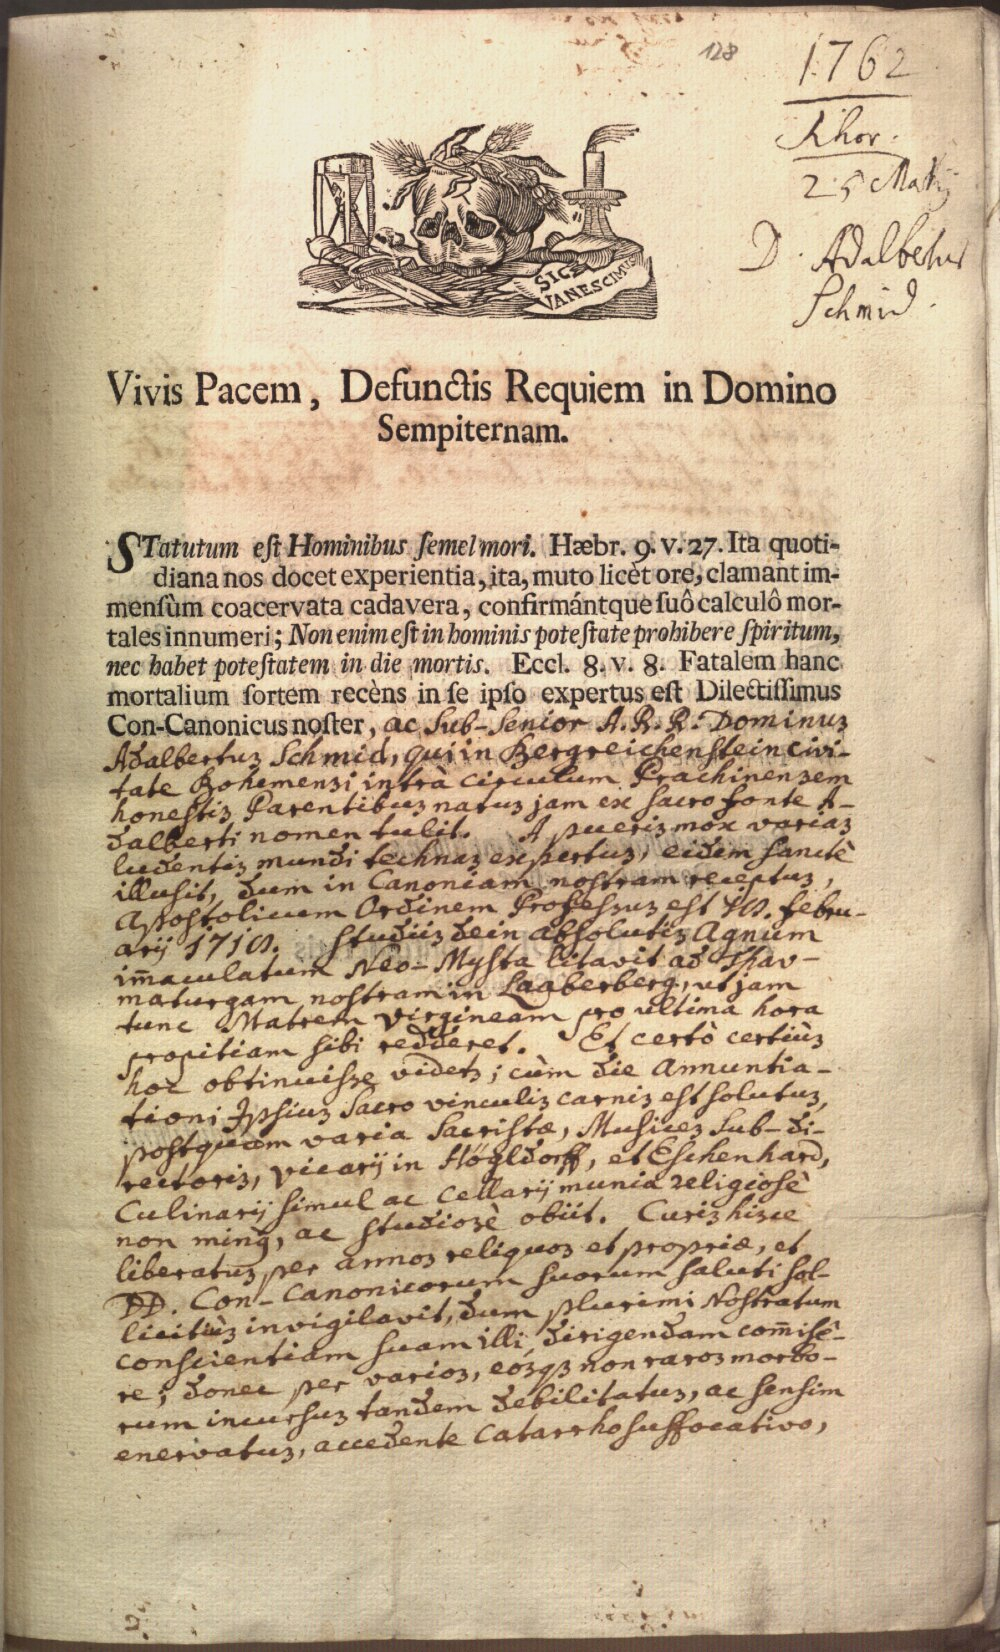 128
1762
Rhor.
25 Martij
D. Adalbertus
Schmid.
SIC
VANESCIMUS
Vivis Pacem, Defunctis Requiem in Domino
Sempiternam.
STatutum est Hominibus semel mori. Hæbr. 9. v. 27. Ita quoti-
diana nos docet experientia, ita, muto licèt ore, clamant im-
mensùm coacervata cadavera, confirmántque suô calculô mor-
tales innumeri; Non enim est in hominis potestate prohibere spiritum,
nec habet potestatem in die mortis. Eccl. 8. v. 8. Fatalem hanc
mortalium sortem recèns in se ipso expertus est Dilectissimus
Con-Canonicus noster, ac Sub-Senior A. R. R. Dominus
Adalbertus Schmid, qui in Bergreichenstein civi-
tate Bohemensi intrà circulum Prachinensem
honestis Parentibus natus jam ex sacro fonte A-
dalberti nomen tulit. A pueris mox varias
ludentis mundi technas expertus, eidem sanctè
illusit, dum in Canoniam nostram receptus,
Apostolicum Ordinem Professus est febru-
arij Studiis dein absolutis Agnum
im̄aculatum Neo-Mysta litavit ad Thav-
maturgam nostram in Laaberberg, ut jam
tunc Matrem Virgineam pro ultima hora
propitiam sibi redderet. Et certò certiùs
hoc obtinuisse videts; cùm die Annuntia-
tioni Ipsius Sacro vinculis carnis est solutus,
postquam varia Sacristæ, Musices Sub-di-
rectoris, vicarij in Högldorff, et Eschenhard,
Culinarij simul ac Cellarij munia religiosè
non minq, ac studiosè obiit. Curis hisce
liberatus per annos reliquos et propriæ, et
DD. Con-Canonicorum suorum saluti sol-
licitiùs invigilavit, dum plurimi Nostratum
conscientiam suam illi dirigendam com̄isê-
re; donec per varios, eósqȝ non raros morbo-
rum incursus tandem debilitatus, ac sensim
enervatus, accedente Catarrho suffocativo,